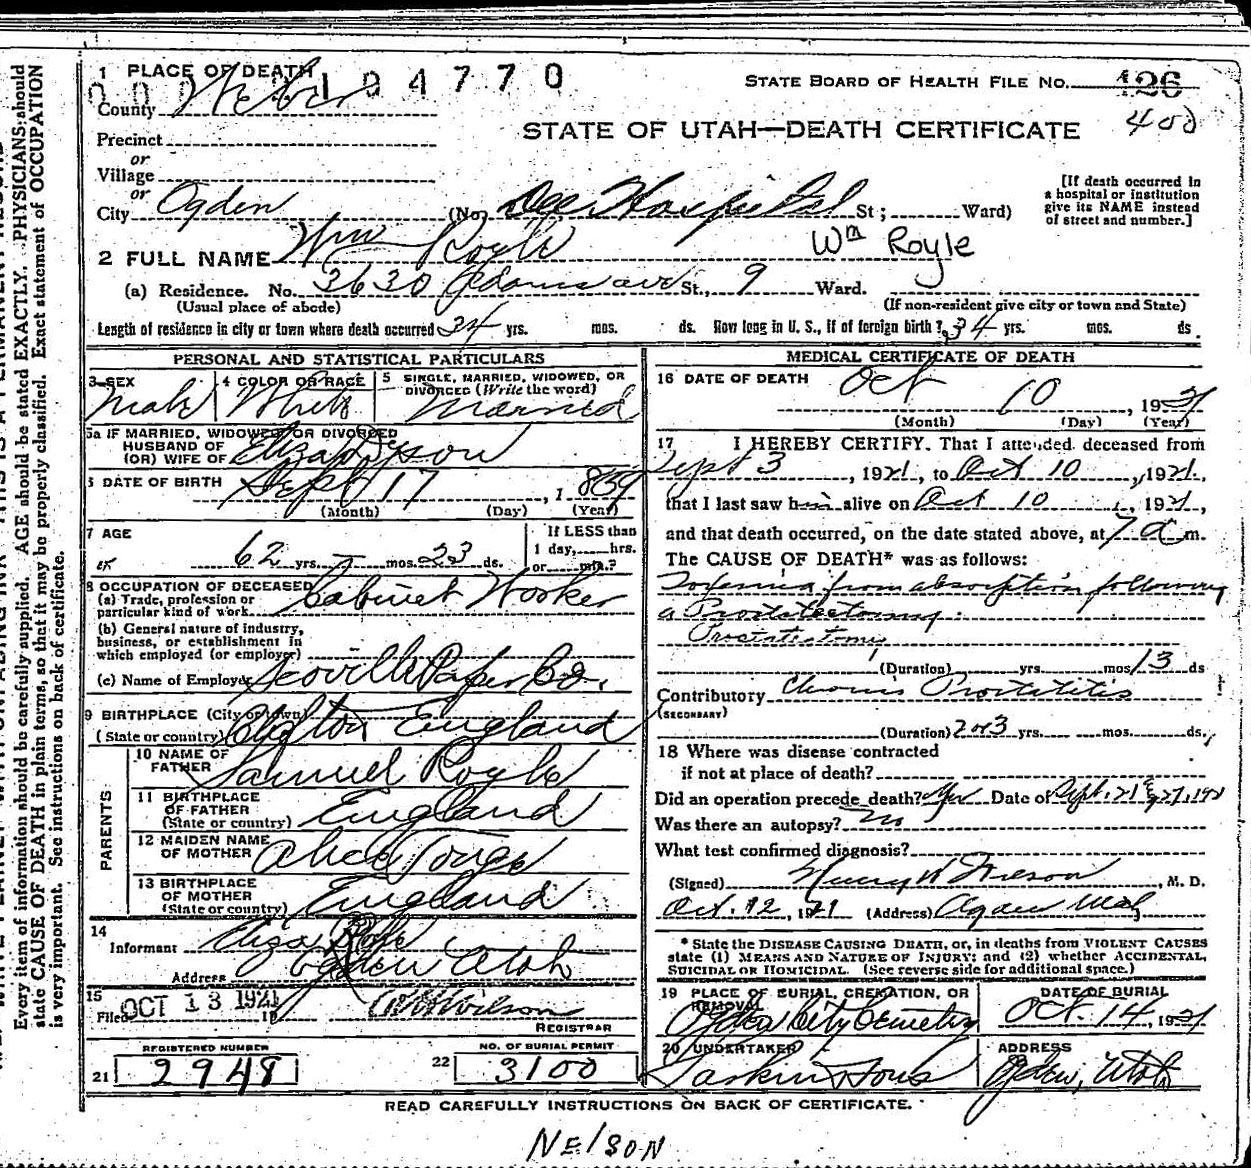 1 PLACE OF DEATH
0194770
STATE BOARD OF HEALTH FILE No. 426
County Weber
400
STATE OF UTAH—DEATH CERTIFICATE
Precinct
or
Village
or
City Ogden (No. Dee Hospital St; Ward)
[If death occurred in a hospital or institution give its NAME instead of street and number.]
2 FULL NAME Wm Royle
Wm Royle
(a) Residence. No. 3630 Adams ave St., 9 Ward.
(Usual place of abode) (If non-resident give city or town and State)
Length of residence in city or town where death occurred 34 yrs. mos. ds. How long in U. S., if of foreign birth? 34 yrs. mos. ds.
PERSONAL AND STATISTICAL PARTICULARS
3 SEX Male
4 COLOR OR RACE White
5 SINGLE, MARRIED, WIDOWED, OR DIVORCED (Write the word) Married
5a IF MARRIED, WIDOWED, OR DIVORCED
HUSBAND OF
(OR) WIFE OF Eliza Dyson
6 DATE OF BIRTH Sept 17, 1859
(Month) (Day) (Year)
7 AGE 62 yrs. mos. 23 ds.
If LESS than
1 day, hrs.
or min.?
8 OCCUPATION OF DECEASED
(a) Trade, profession or
particular kind of work Cabinet Worker
(b) General nature of industry,
business, or establishment in
which employed (or employer)
(c) Name of Employer Scoville Paper Co.
9 BIRTHPLACE (City or town)
(State or country) England
PARENTS
10 NAME OF
FATHER Samuel Royle
11 BIRTHPLACE
OF FATHER
(State or country) England
12 MAIDEN NAME
OF MOTHER Alice Tonge
13 BIRTHPLACE
OF MOTHER
(State or country) England
14
Informant Eliza Royle
Address Ogden Utah
15
Filed OCT 13 1921 19 Wilson
REGISTRAR
REGISTERED NUMBER
21 2948
NO. OF BURIAL PERMIT
22 3100
MEDICAL CERTIFICATE OF DEATH
16 DATE OF DEATH Oct 10, 1921
(Month) (Day) (Year)
17 I HEREBY CERTIFY. That I attended deceased from
Sept 3, 1921, to Oct 10, 1921,
that I last saw him alive on Oct 10, 1921,
and that death occurred, on the date stated above, at 7 a m.
The CAUSE OF DEATH* was as follows:
Toxemia from absorption following
a Prostatectomy.
Prostatectomy
(Duration) yrs. mos 13 ds
Contributory Chronic Prostatitis
(SECONDARY)
(Duration) 2 or 3 yrs. mos. ds.
18 Where was disease contracted
if not at place of death?
Did an operation precede death? Yes Date of Sept. 21 & 27, 192
Was there an autopsy? No
What test confirmed diagnosis?
(Signed) W Nelson, M. D.
Oct. 12, 1921 (Address) Ogden Utah
* State the DISEASE CAUSING DEATH, or, in deaths from VIOLENT CAUSES
state (1) MEANS AND NATURE OF INJURY: and (2) whether ACCIDENTAL,
SUICIDAL OR HOMICIDAL. (See reverse side for additional space.)
19 PLACE OF BURIAL, CREMATION, OR
REMOVAL
Ogden City Cemetery
DATE OF BURIAL
OCT. 14, 1921
20 UNDERTAKER
Larkin & Sons
ADDRESS
Ogden, Utah
READ CAREFULLY INSTRUCTIONS ON BACK OF CERTIFICATE.
NELSON
Every item of information should be carefully supplied. AGE should be stated EXACTLY. PHYSICIANS should
state CAUSE OF DEATH in plain terms, so that it may be properly classified. Exact statement of OCCUPATION
is very important. See instructions on back of certificate.